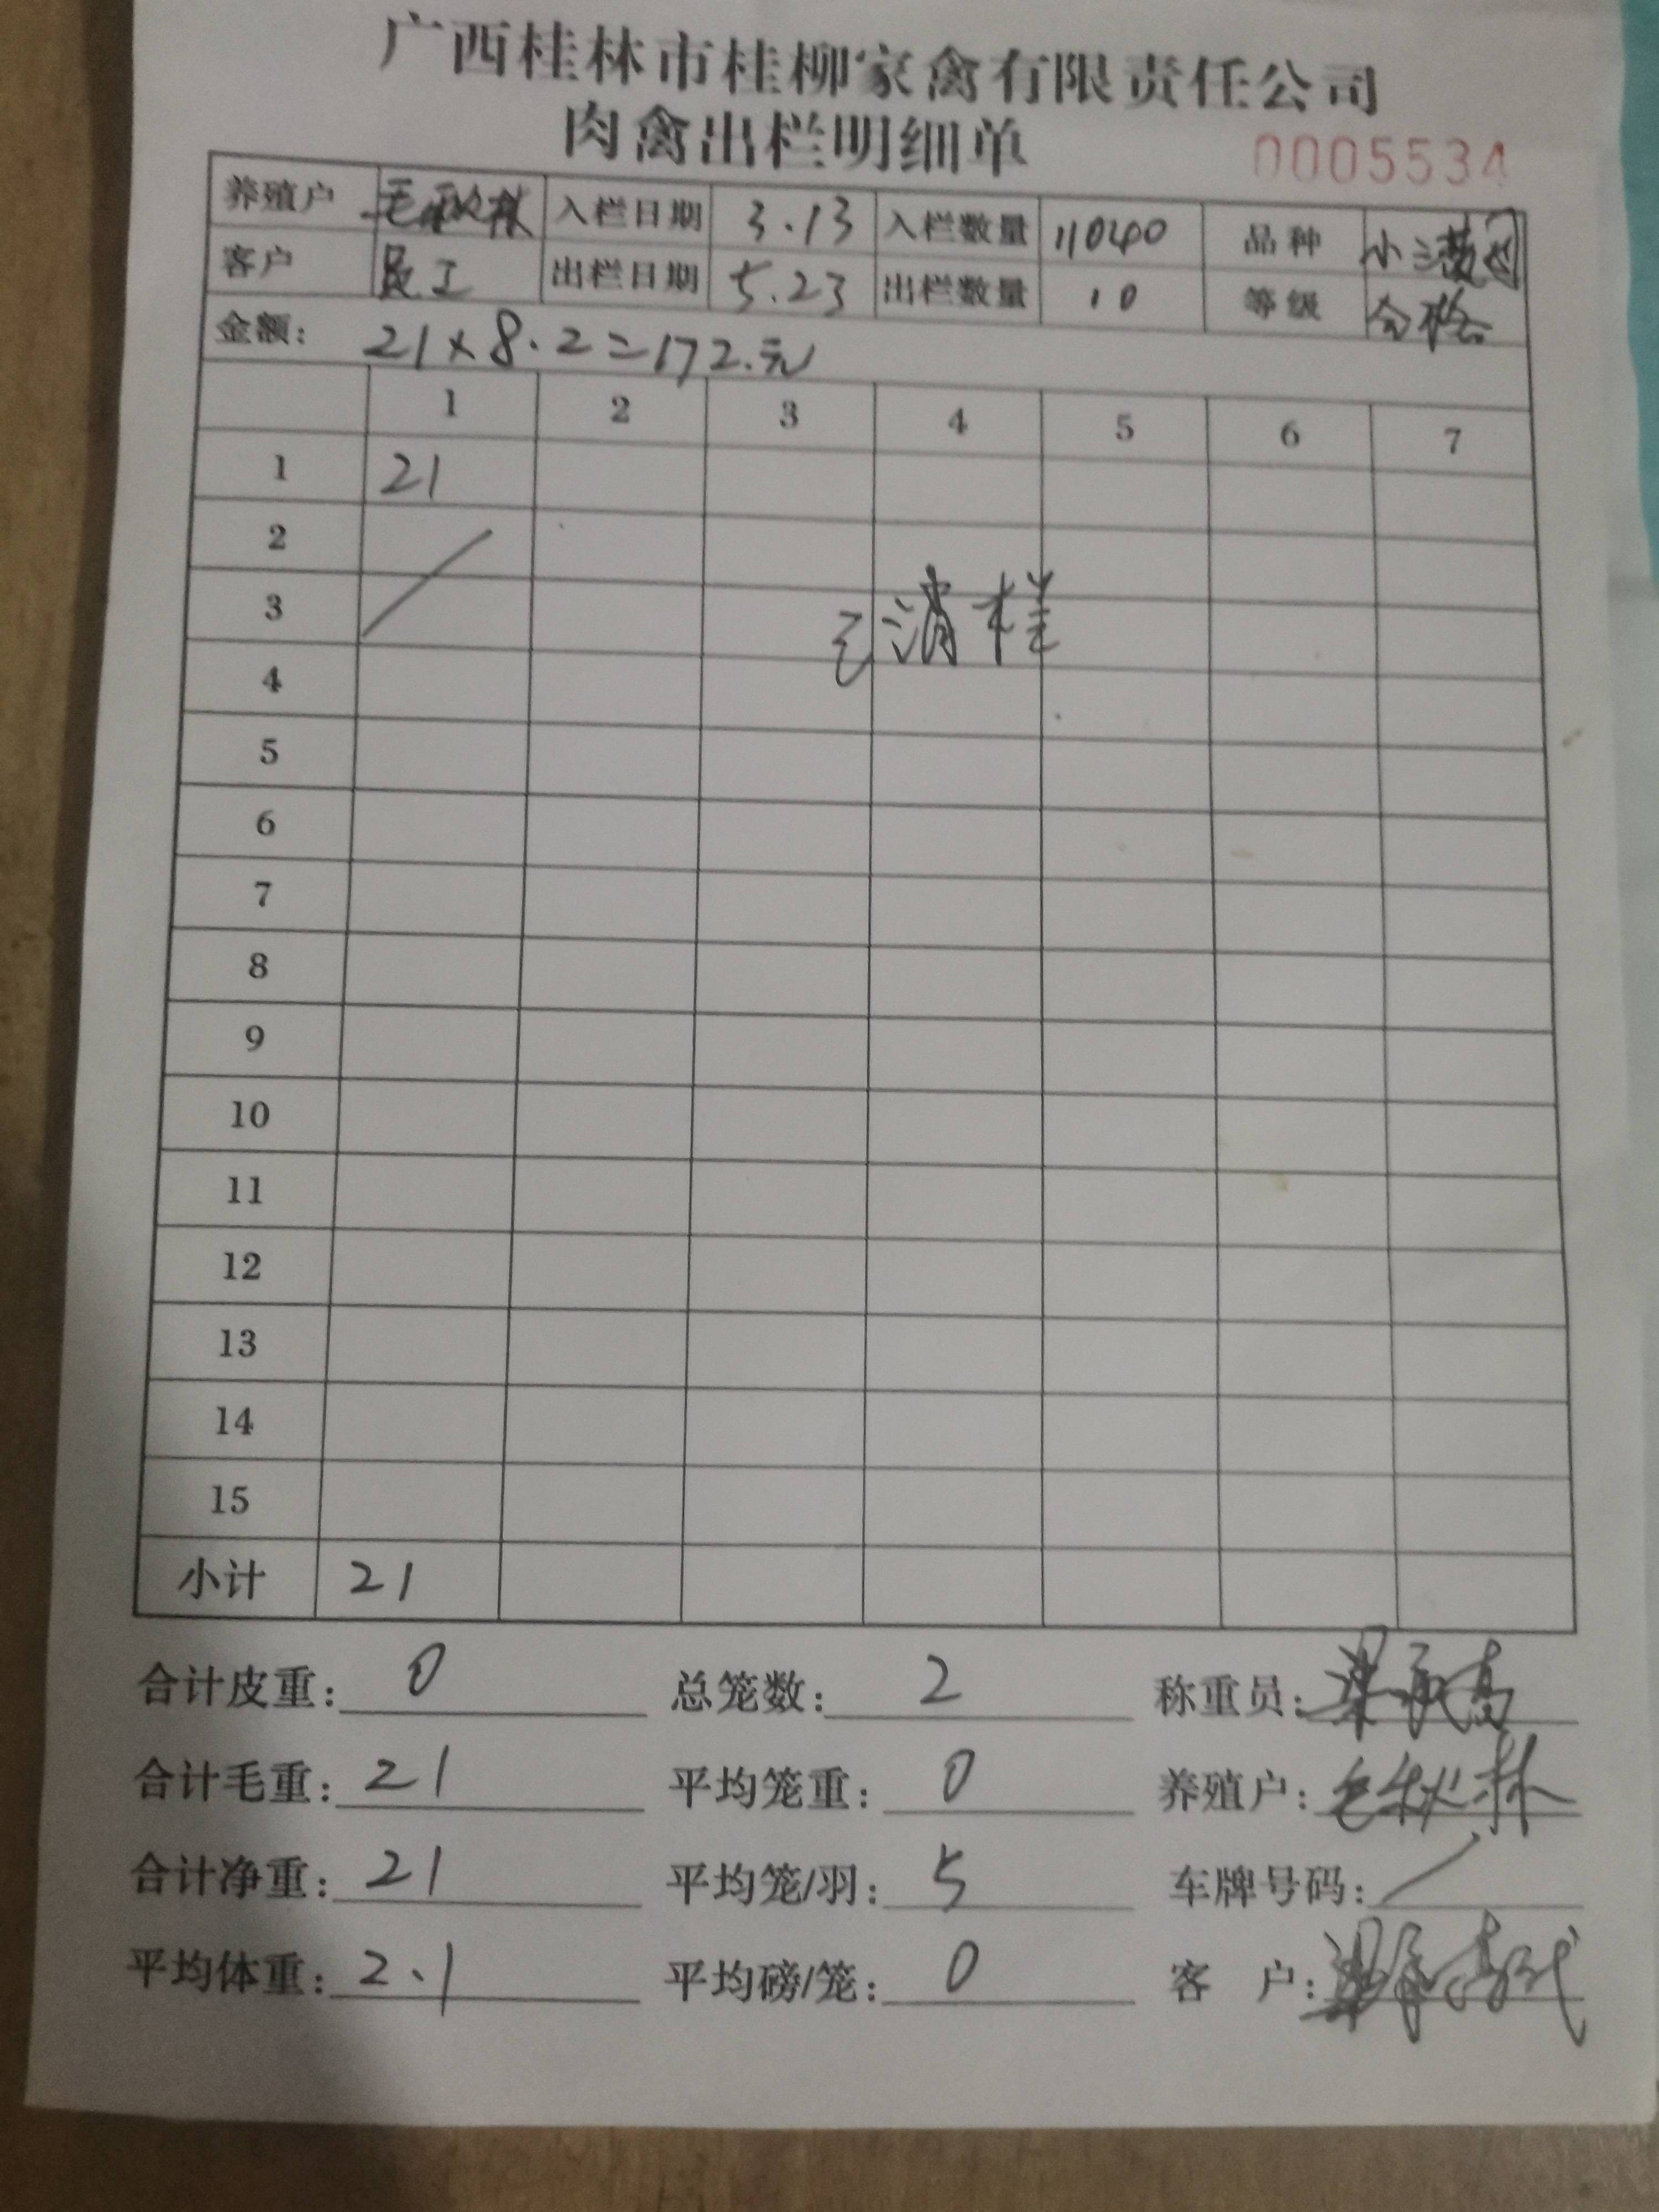 广西桂林市桂柳家禽有限责任公司
肉禽出栏明细单
0005534
养殖户 入栏日期 3.13 入栏数量 11040 品种
客户 员工 出栏日期 5.23 出栏数量 10 等级 合格
金额: 21×8.2=172.元
1 2 3 4 5 6 7
1 21
2
3
4
5
6
7
8
9
10
11
12
13
14
15
小计 21
合计皮重: 0 总笼数: 2 称重员:
合计毛重: 21 平均笼重: 0 养殖户: 毛秋林
合计净重: 21 平均笼/羽: 5 车牌号码:
平均体重: 2.1 平均磅/笼: 0 客 户: